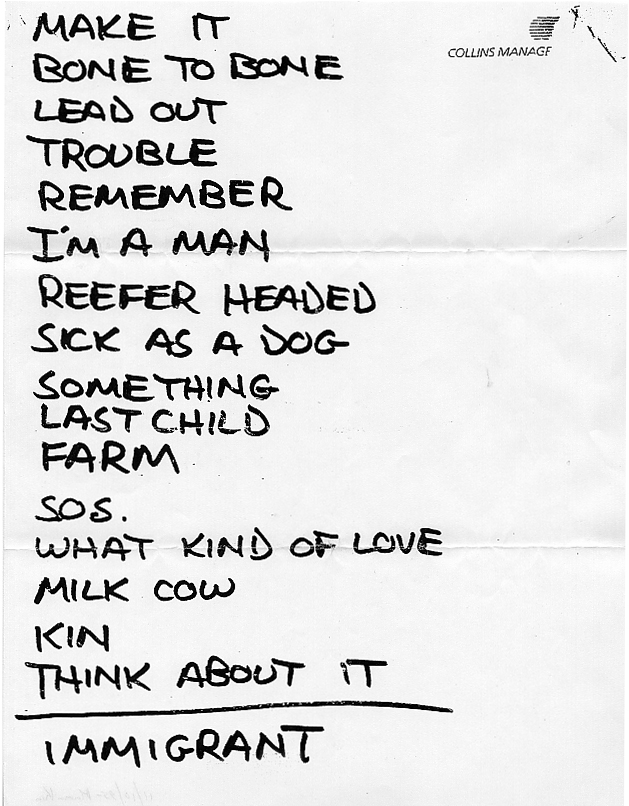 MAKE IT
COLLINS MANAGE
BONE TO BONE
LEAD OUT
TROUBLE
REMEMBER
I'M A MAN
REEFER HEADED
SICK AS A DOG
SOMETHING
LAST CHILD
FARM
SOS.
WHAT KIND OF LOVE
MILK COW
KIN
THINK ABOUT IT
IMMIGRANT